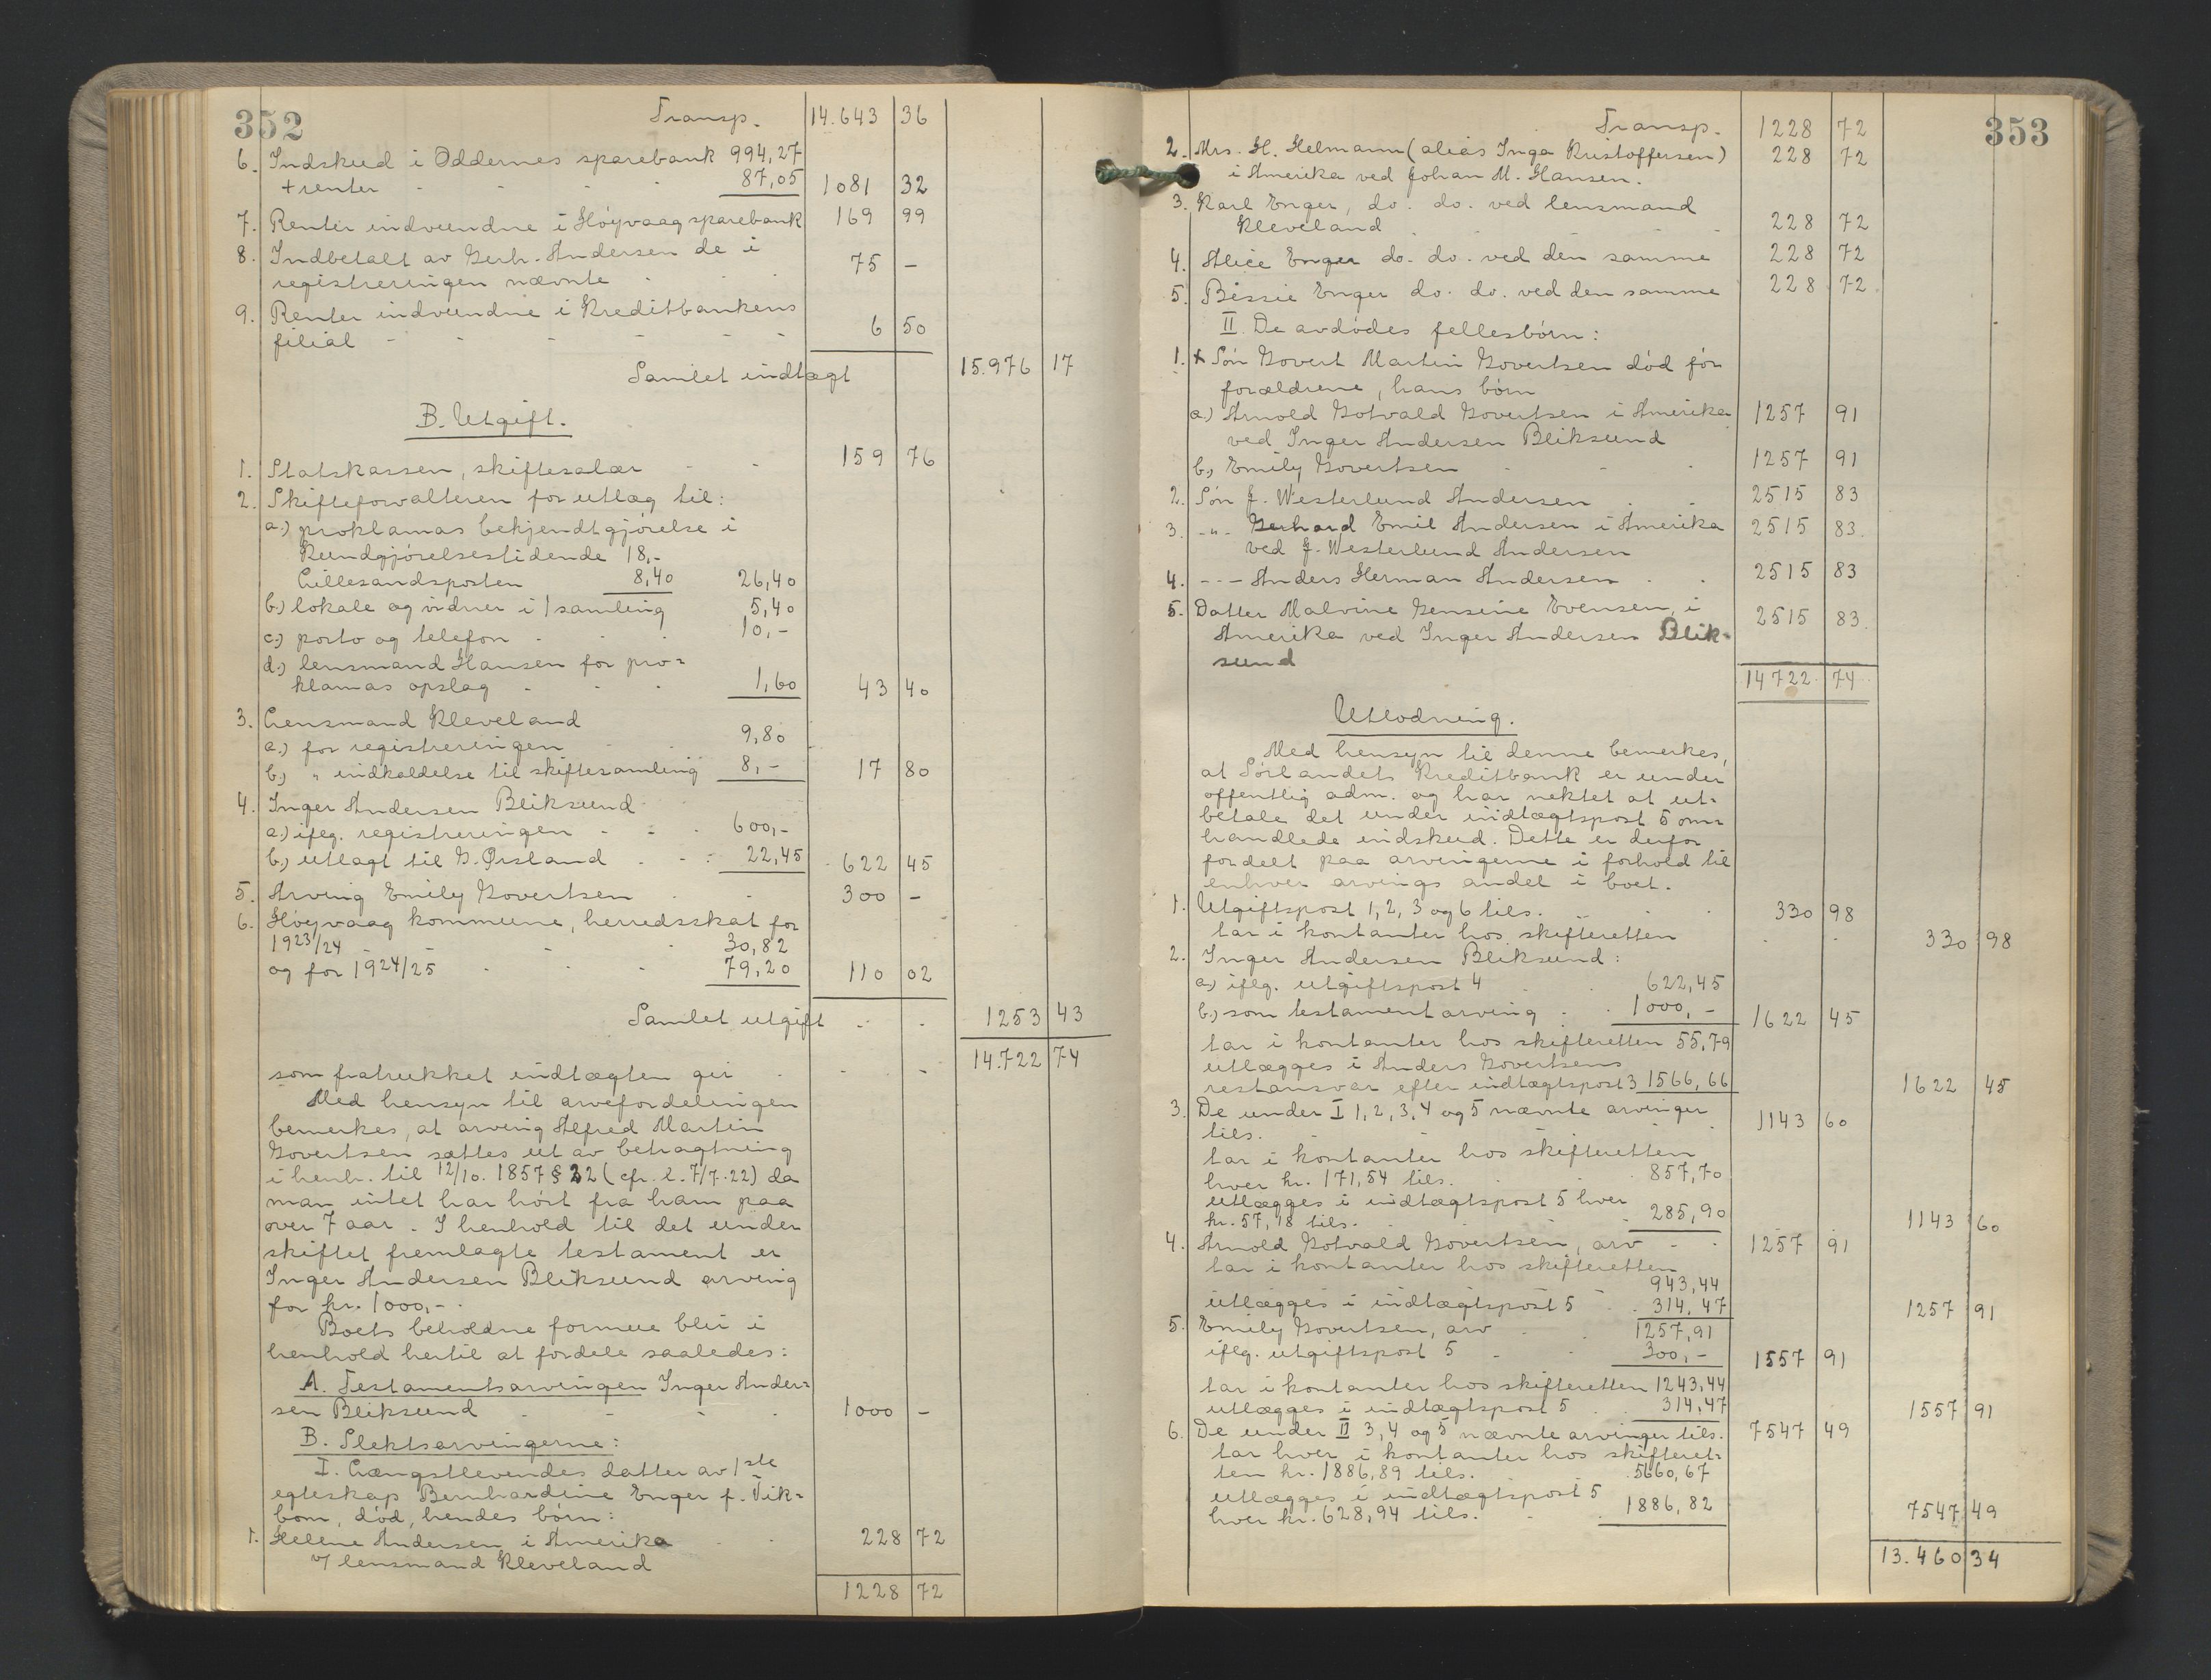 352
Transp. 14.643 36
6. Indskud i Oddernes sparebank 994,27
+ renter - - - - 87,05 1081 32
7. Renter indvundne i Høyvaag sparebank 169 99
8. Indbetalt av Gerh. Andersen de i
registreringen nævnte 75 -
9. Renter indvundne i Kreditbankens
filial - - - - - - 6 50
Samlet indtægt 15.976 17
B. Utgift.
1. Statskassen, skiftesalær - - 159 76
2. Skifteforvalteren for utlæg til:
a.) proklamas bekjendtgjørelse i
Kundgjørelsestidende 18,-
Lillesandsposten 8,40 26,40
b.) lokale og vidner i 1 samling 5,40
c.) porto og telefon - - - 10,-
d.) lensmand Hansen for pro=
klamas opslag - - - 1,60 43 40
3. Lensmand Kleveland
a.) for registreringen - - 9,80
b.) " indkaldelse til skiftesamling 8,- 17 80
4. Inger Andersen Bliksund
a.) ifłg. registreringen - - - 600,-
b.) utlagt til G. Ørsland - - - 22,45 622 45
5. Arving Emily Govertsen - - 300 -
6. Høyvaag kommune, herredsskat for
1923/24 - - - - 30,82
og for 1924/25 - - - 79,20 110 02
Samlet utgift - - 1253 43
som fratrukket indtægten gir - - - 14.722 74
Med hensyn til arvefordelingen
bemerkes, at arving Alfred Martin
Govertsen sættes ut av betragtning
i henh. til 12/10. 1857 § 22 (cfr. l. 7/7-22) da
man intet har hørt fra ham paa
over 7 aar. I henhold til det under
skiftet fremlagte testament er
Inger Andersen Bliksund arving
for kr. 1000,-.
Boets beholdne formue blir i
henhold hertil at fordele saaledes:
A. Testamentsarvingen Inger Ander=
sen Bliksund - - - - 1000 -
B. Slektsarvingerne:
I. Længstlevendes datter av 1ste
egteskap Bernhardine Enger f. Vik=
bom, død, hendes børn:
1. Helene Andersen i Amerika - - 228 72
v/ lensmand Kleveland
1228 72
353
Transp. 1228 72
2. Mrs. H. Helmann (alias Inga Kristoffersen) 228 72
i Amerika ved Johan M. Hansen.
3. Karl Enger, do. do. ved lensmand
Kleveland - - - - - 228 72
4. Alice Enger do. do. ved den samme 228 72
5. Bissie Enger do. do. ved den samme 228 72
II. De avdødes fellesbørn:
1. + Søn Govert Martin Govertsen død før
forældrene, hans børn
a.) Arnold Gotvald Govertsen i Amerika 1257 91
ved Inger Andersen Bliksund
b.) Emily Govertsen - - - 1257 91
2. Søn J. Westerlund Andersen - - 2515 83
3. -"- Gerhard Emil Andersen i Amerika 2515 83
ved J. Westerlund Andersen
4. -- - Anders Herman Andersen - - 2515 83
5. Datter Malvine Gensine Evensen, i 2515 83
Amerika ved Inger Andersen Blik-
sund
14722 74
Utlodning.
Med hensyn til denne bemerkes,
at Sørlandets Kreditbank er under
offentlig adm. og har nektet at ut=
betale det under indtægtspost 5 om=
handlede indskud. Dette er derfor
fordelt paa arvingerne i forhold til
enhver arvings andel i boet.
1. Utgiftspost 1, 2, 3 og 6 tils. - - - 330 98
tar i kontanter hos skifteretten - - 330 98
2. Inger Andersen Bliksund:
a.) iflg. utgiftspost 4 - - 622,45
b.) som testamentarving - - 1000,- 1622 45
tar i kontanter hos skifteretten 55,79
utlægges i Anders Govertsens
restansvar efter indtægtspost 3 1566,66 1622 45
3. De under I 1, 2, 3, 4 og 5 nævnte arvinger
tils. - - - 1143 60
tar i kontanter hos skifteretten
hver kr. 171,54 tils. - - 857,70
utlægges i indtægtspost 5 hver
kr. 57,18 tils. - - - 285,90 1143 60
4. Arnold Gotvald Govertsen, arv - - 1257 91
tar i kontanter hos skifteretten
943,44
utlægges i indtægtspost 5 - - 314,47 1257 91
5. Emily Govertsen, arv - - 1257,91
iflg. utgiftspost 5 - - 300,- 1557 91
tar i kontanter hos skifteretten 1243,44
utlægges i indtægtspost 5 - - 314,47 1557 91
6. De under II 3, 4 og 5 nævnte arvinger tils. 7547 49
tar hver i kontanter hos skifteret=
ten kr. 1886,89 tils. 5660,67
utlægges i indtægtspost 5
hver kr. 628,94 tils. - - 1886,82 7547 49
13.460 34